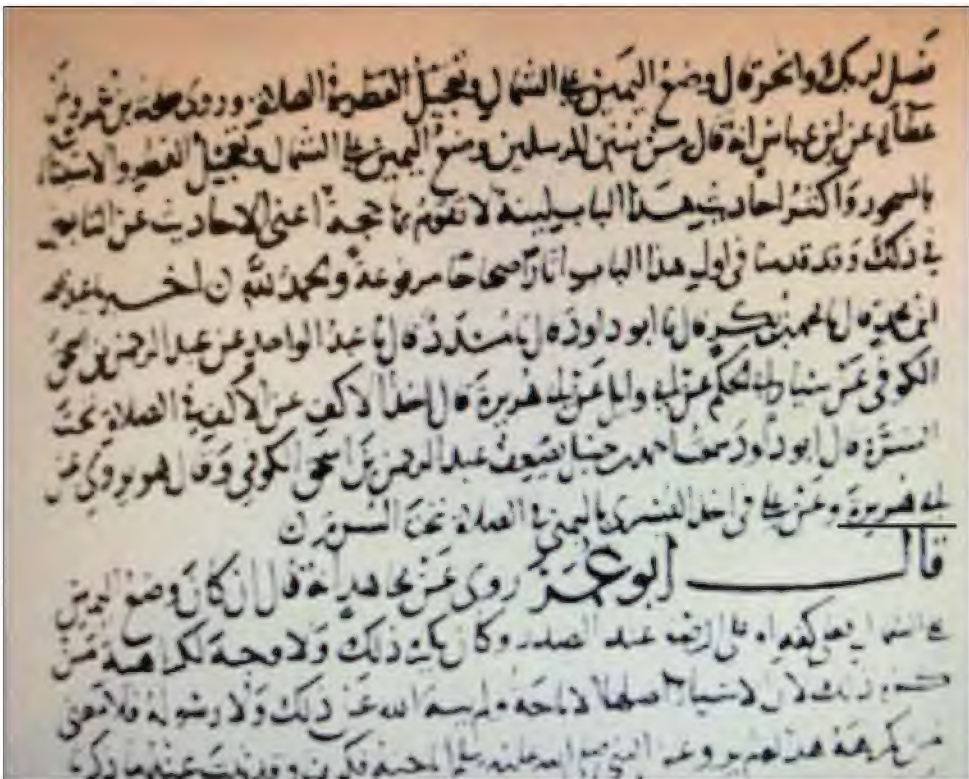 فصل لربك وانحر قال وضع اليمين على الشمال وتعجيل الفطر في الصلاة وروى طلحة بن عمرو عن
عطاء عن ابن عباس انه قال من سنن المرسلين وضع اليمين على الشمال وتعجيل الفطر والاستيناء
بالسحور واكثر احاديث هذا الباب لينة لا تقوم بها حجة اعني الاحاديث عن التابعين
في ذلك وقد قدمنا في اول هذا الباب اثارا صحاحا مرفوعة والحمد لله ن اخبرنا عبد الله
ابن محمد قال نا محمد بن بكر قال نا ابو داود قال نا مسدد قال نا عبد الواحد عن عبد الرحمن بن اسحق
الكوفي عن سيار ابي الحكم عن ابي وايل عن ابي هريرة قال اخذ الاكف عن الاكف في الصلاة تحت
السرة قال ابو داود سمعت احمد بن حنبل يضعف عبد الرحمن بن اسحق الكوفي وقال هو يروي عن
ابي هريرة وعن علي في اخذ اليسرى باليمين في الصلاة تحت السرة ن
قال ابو عمر روى عن مجاهد انه قال ان كان وضع اليمين
على الشمال فعلى كفه او على الرسغ عند الصدر وكان يكره ذلك ولا وجه لكراهية من
كره ذلك لان الاشياء اصلها الاباحة ولم ينه الله عن ذلك ولا رسوله فلا معنى